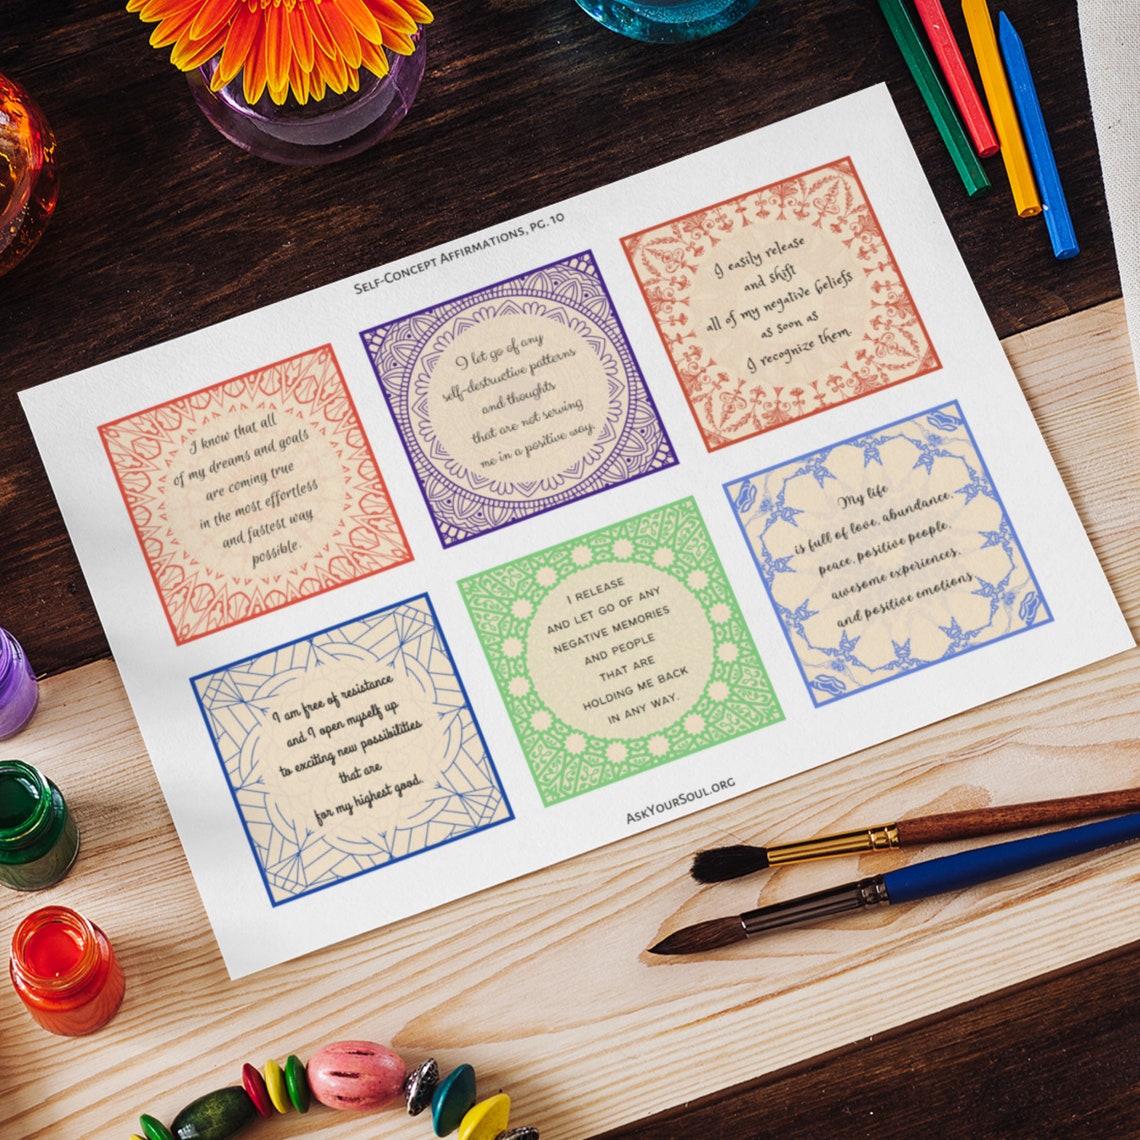 Self-Concept Affirmations, pg. 10
I know that all
of my dreams and goals
are coming true
in the most effortless
and fastest way
possible.
I let go of any
self-destructive patterns
and thoughts
that are not serving
me in a positive way.
I easily release
and shift
all of my negative beliefs
as soon as
I recognize them.
I am free of resistance
and I open myself up
to exciting new possibilities
that are
for my highest good.
I RELEASE
AND LET GO OF ANY
NEGATIVE MEMORIES
AND PEOPLE
THAT ARE
HOLDING ME BACK
IN ANY WAY.
My life
is full of love, abundance,
peace, positive people,
awesome experiences,
and positive emotions
AskYourSoul.org